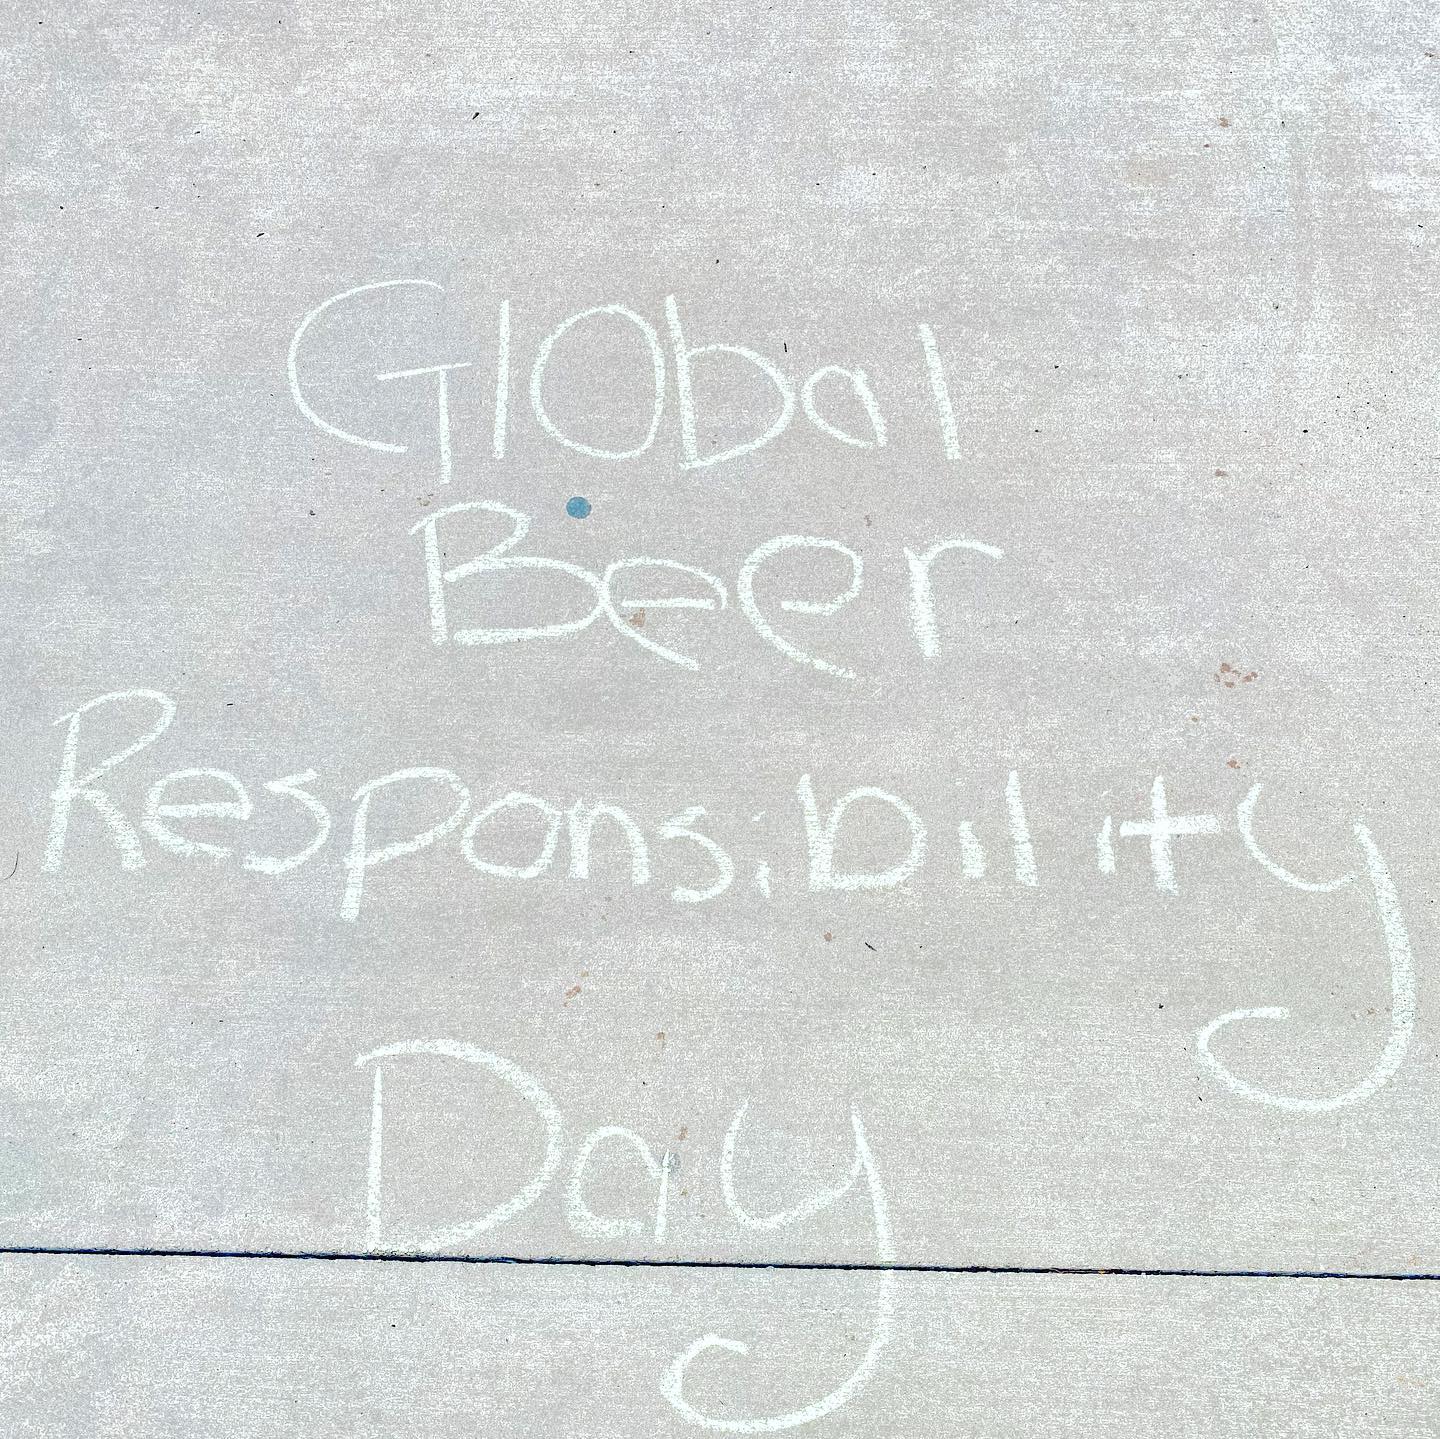 Global
Beer
Responsibility
Day